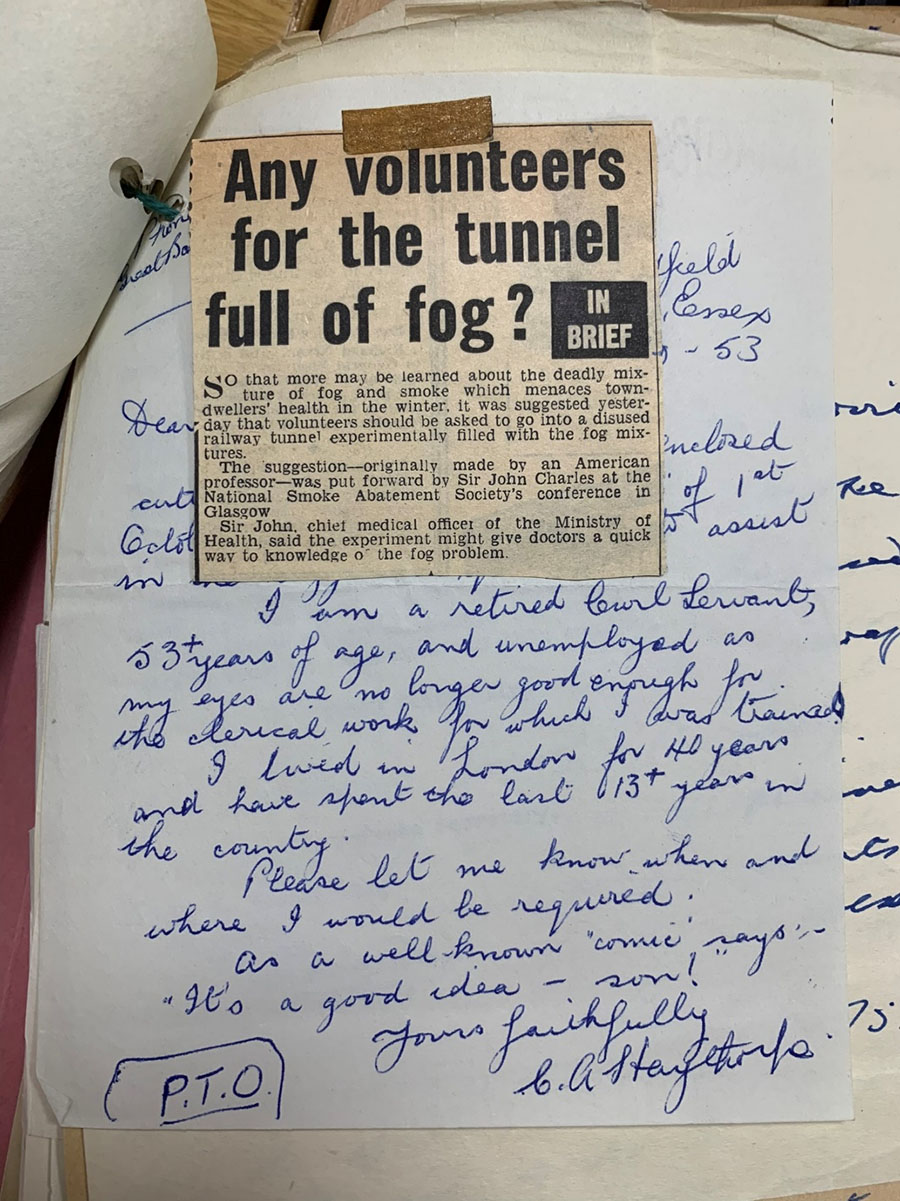 Any volunteers
for the tunnel
full of fog?
IN
BRIEF
SO that more may be learned about the deadly mix-
ture of fog and smoke which menaces town-
dwellers' health in the winter, it was suggested yester-
day that volunteers should be asked to go into a disused
railway tunnel experimentally filled with the fog mix-
tures.
The suggestion—originally made by an American
professor—was put forward by Sir John Charles at the
National Smoke Abatement Society's conference in
Glasgow
Sir John, chief medical officer of the Ministry of
Health, said the experiment might give doctors a quick
way to knowledge of the fog problem.
field
Essex
- 53
Dear
enclosed
of 1st
assist
in
I am a retired Civil Servant,
53+ years of age, and unemployed as
my eyes are no longer good enough for
the clerical work for which I was trained
I lived in London for 40 years
and have spent the last 13+ years in
the country.
Please let me know when and
where I would be required.
As a well-known "comic" says:-
"It's a good idea - son!"
Yours faithfully
C. A Haythorpe.
P.T.O.